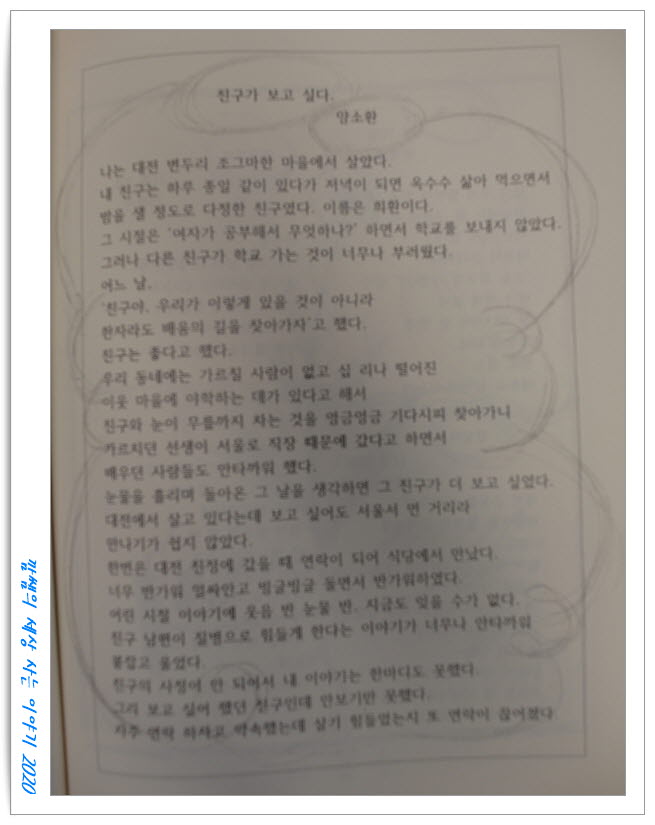 친구가 보고 싶다.
양소환
나는 대전 변두리 조그마한 마을에서 살았다.
내 친구는 하루 종일 같이 있다가 저녁이 되면 옥수수 삶아 먹으면서
밤을 샐 정도로 다정한 친구였다. 이름은 희환이다.
그 시절은 '여자가 공부해서 무엇하나?' 하면서 학교를 보내지 않았다.
그러나 다른 친구가 학교 가는 것이 너무나 부러웠다.
어느 날,
'친구야, 우리가 이렇게 있을 것이 아니라
한자라도 배움의 길을 찾아가자'고 했다.
친구는 좋다고 했다.
우리 동네에는 가르칠 사람이 없고 십 리나 떨어진
이웃 마을에 야학하는 데가 있다고 해서
친구와 눈이 무릎까지 차는 것을 엉금엉금 기다시피 찾아가니
가르치던 선생이 서울로 직장 때문에 갔다고 하면서
배우던 사람들도 안타까워 했다.
눈물을 흘리며 돌아온 그 날을 생각하면 그 친구가 더 보고 싶었다.
대전에서 살고 있다는데 보고 싶어도 서울서 먼 거리라
만나기가 쉽지 않았다.
한번은 대전 친정에 갔을 때 연락이 되어 식당에서 만났다.
너무 반가워 얼싸안고 빙글빙글 돌면서 반가워하였다.
어린 시절 이야기에 웃음 반 눈물 반, 지금도 잊을 수가 없다.
친구 남편이 질병으로 힘들게 한다는 이야기가 너무나 안타까워
붙잡고 울었다.
친구의 사정이 안 되어서 내 이야기는 한마디도 못했다.
그리 보고 싶어 했던 친구인데 안보기만 못했다.
자주 연락 하자고 약속했는데 살기 힘들었는지 또 연락이 끊어졌다.
세상 사는 이야기 2020